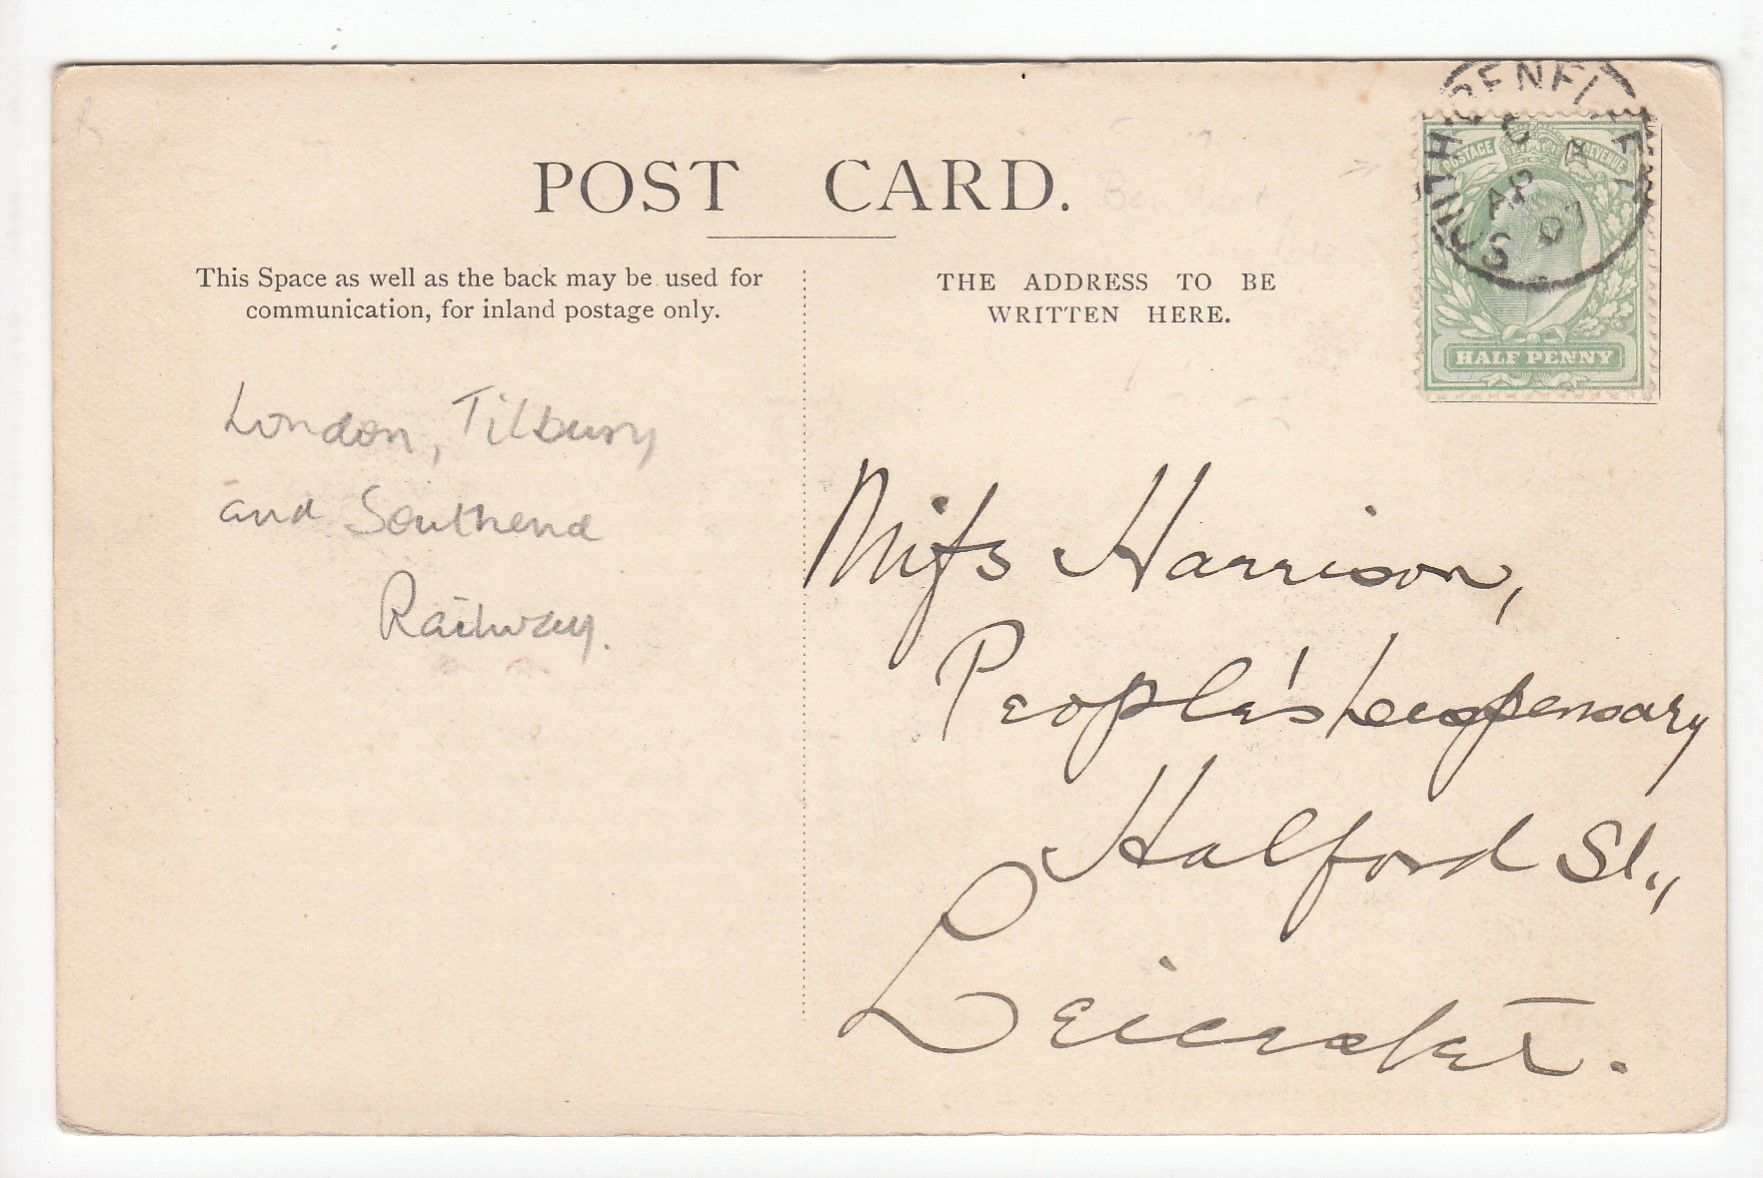 POST CARD.
This Space as well as the back may be used for
communication, for inland postage only.
THE ADDRESS TO BE
WRITTEN HERE.
SOUTH BENFLEET
AP
5 07
POSTAGE REVENUE
HALF PENNY
London, Tilbury
and Southend
Railway.
Miſs Harrison,
People's Dispensary
Halford St.,
Leicester.